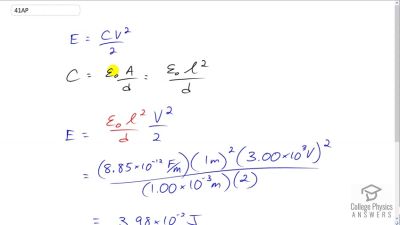 41AP
E = CV²/2
C = ε₀ A/d = ε₀ l²/d
E = ε₀ l²/d V²/2
= (8.85×10⁻¹² F/m)(1m)²(3.00×10³V)² / (1.00×10⁻³m)(2)
= 3.98×10⁻² J
College Physics
ANSWERS